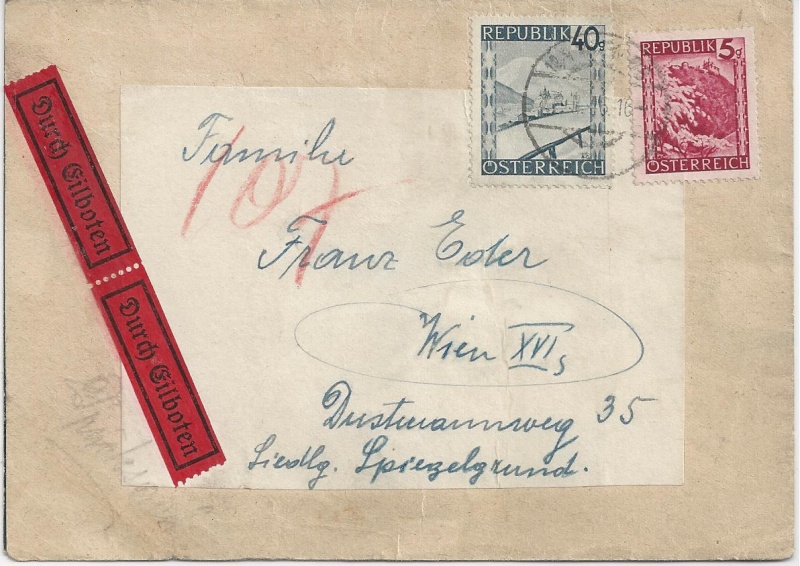 REPUBLIK 40g
ÖSTERREICH
REPUBLIK 5g
ÖSTERREICH
Durch Eilboten
Durch Eilboten
Familie
Franz Eder
Wien XVI,
Dustmannweg 35
Siedlg. Spiegelgrund.